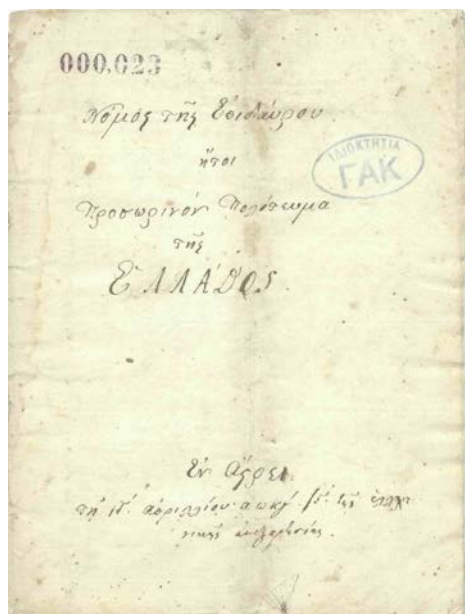 000,023
Νόμος τῆς Ἐπιδαύρου
ἤτοι
ΙΔΙΟΚΤΗΣΙΑ
ΓΑΚ
Προσωρινὸν Πολίτευμα
τῆς
ἙΛΛΆΔΟΣ.
Ἐν Ἄστρει
τῇ ιδ΄. ἀπριλλίου αωκγ΄ τῆς ἑλλη
νικῆς ἀνεξαρτησίας.